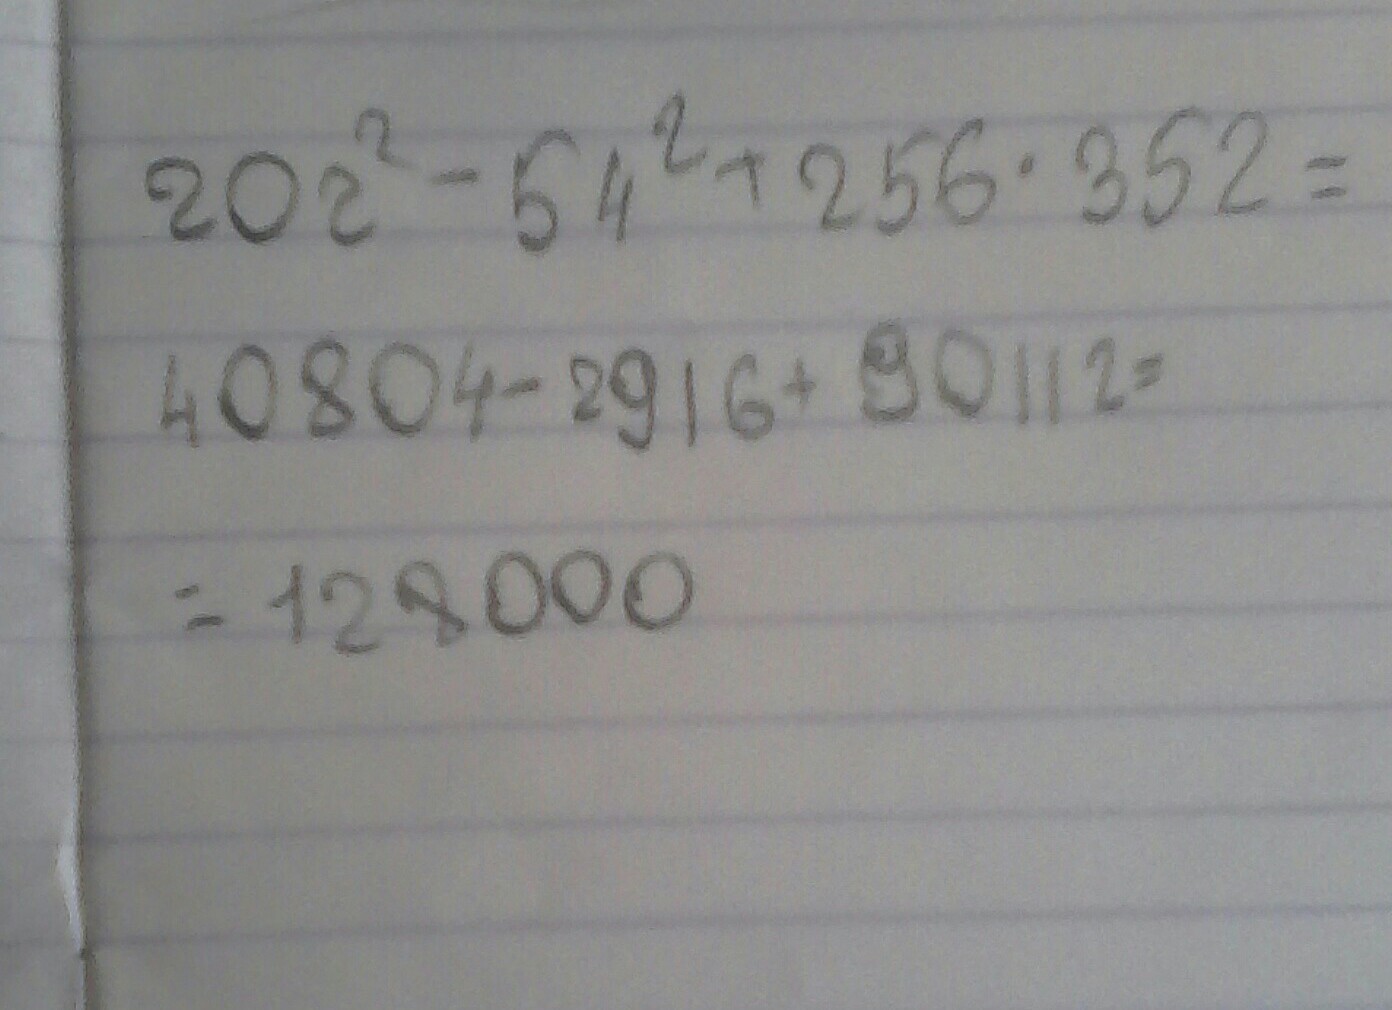 202² - 54² + 256 · 352 =
40804 - 2916 + 90112 =
= 128000